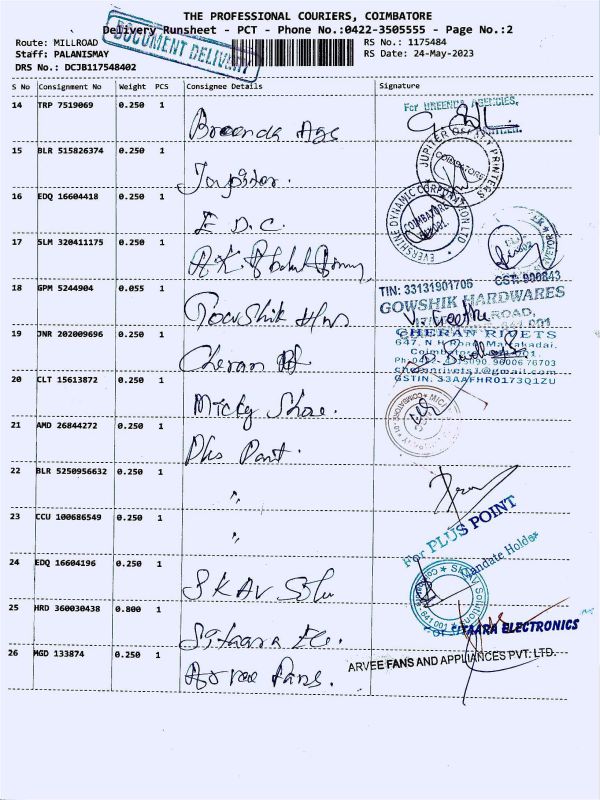 THE PROFESSIONAL COURIERS, COIMBATORE
Delivery Runsheet - PCT - Phone No.:0422-3505555 - Page No.:2
DOCUMENT DELIVERY
Route: MILLROAD RS No.: 1175484
Staff: PALANISMAY RS Date: 24-May-2023
DRS No.: DCJB117548402
S No Consignment No Weight PCS Consignee Details Signature
14 TRP 7519069 0.250 1
Breenda Ags
For BREENDA AGENCIES,
15 BLR 515826374 0.250 1
Jupiter.
JUPITER OFFSET PRINTERS
COIMBATORE
16 EDQ 16604418 0.250 1
E. D. C.
EVERSHINE DYNAMIC CORPORATION LTD
COIMBATORE
17 SLM 320411175 0.250 1
A.K.
CST: 900843
18 GPM 5244904 0.055 1
Gowshik H/ws
TIN: 33131901706
GOWSHIK HARDWARES
ROAD,
V. Geetha
19 JNR 202009696 0.250 1
Cheran
CHERAN RIVETS
647, N H Road,
Coimbatore
cheranrivets1@gmail.com
GSTIN: 33AAFHR0173Q1ZU
20 CLT 15613872 0.250 1
Micky Shoe.
21 AMD 26844272 0.250 1
Plus Point.
22 BLR 5250956632 0.250 1
"
23 CCU 100686549 0.250 1
"
For PLUS POINT
Mandate Holder
24 EDQ 16604196 0.250 1
SKAV Solu
SKAV Solutions
25 HRD 360030438 0.800 1
Sitaara Ele.
For SITAARA ELECTRONICS
26 MGD 133874 0.250 1
Arvee Fans.
ARVEE FANS AND APPLIANCES PVT. LTD.